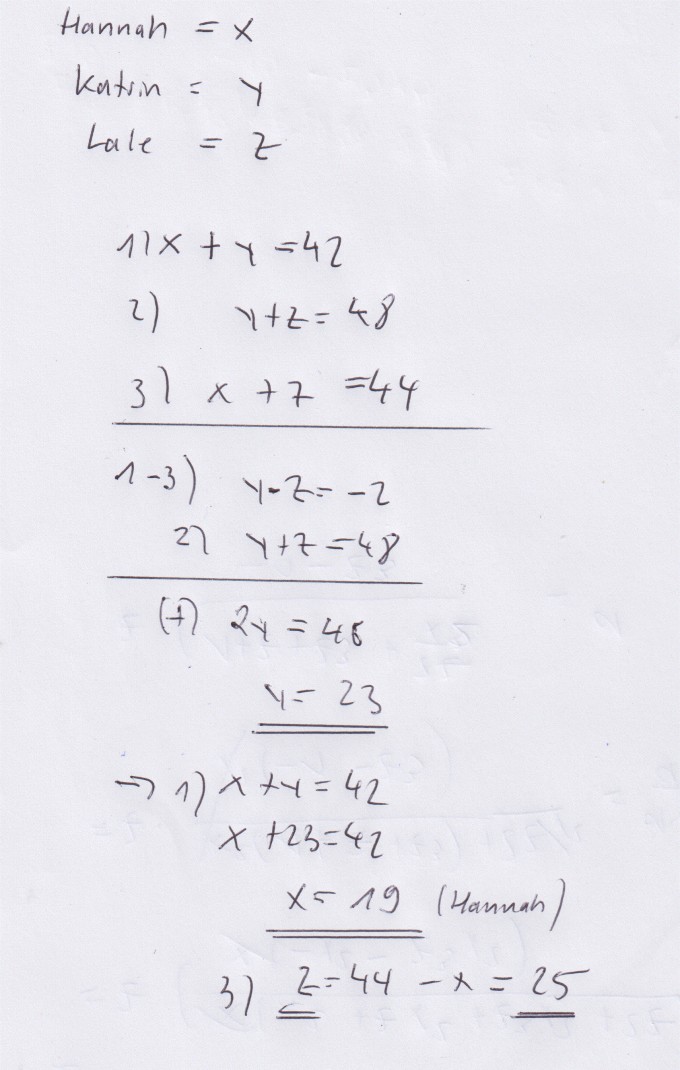 Hannah = x
Katrin = y
Lale = z
1) x + y = 42
2) y + z = 48
3) x + z = 44
1-3) y - z = -2
2) y + z = 48
(+) 2y = 46
y = 23
→ 1) x + y = 42
x + 23 = 42
x = 19 (Hannah)
3) z = 44 - x = 25